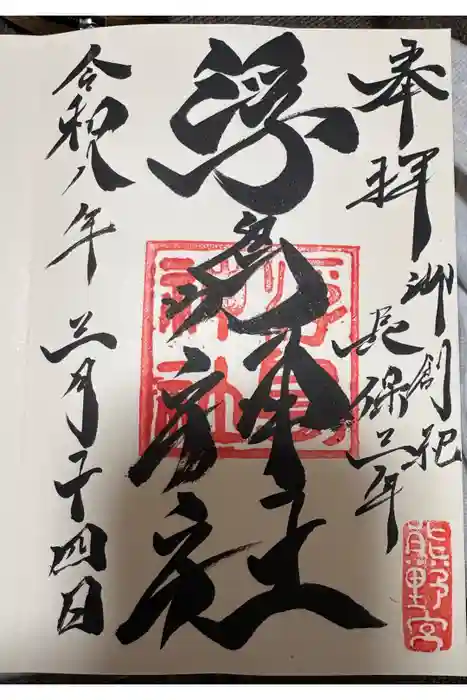 奉拝
御創祀
長保三年
熊野宮
浮島神社
令和八年三月二十四日